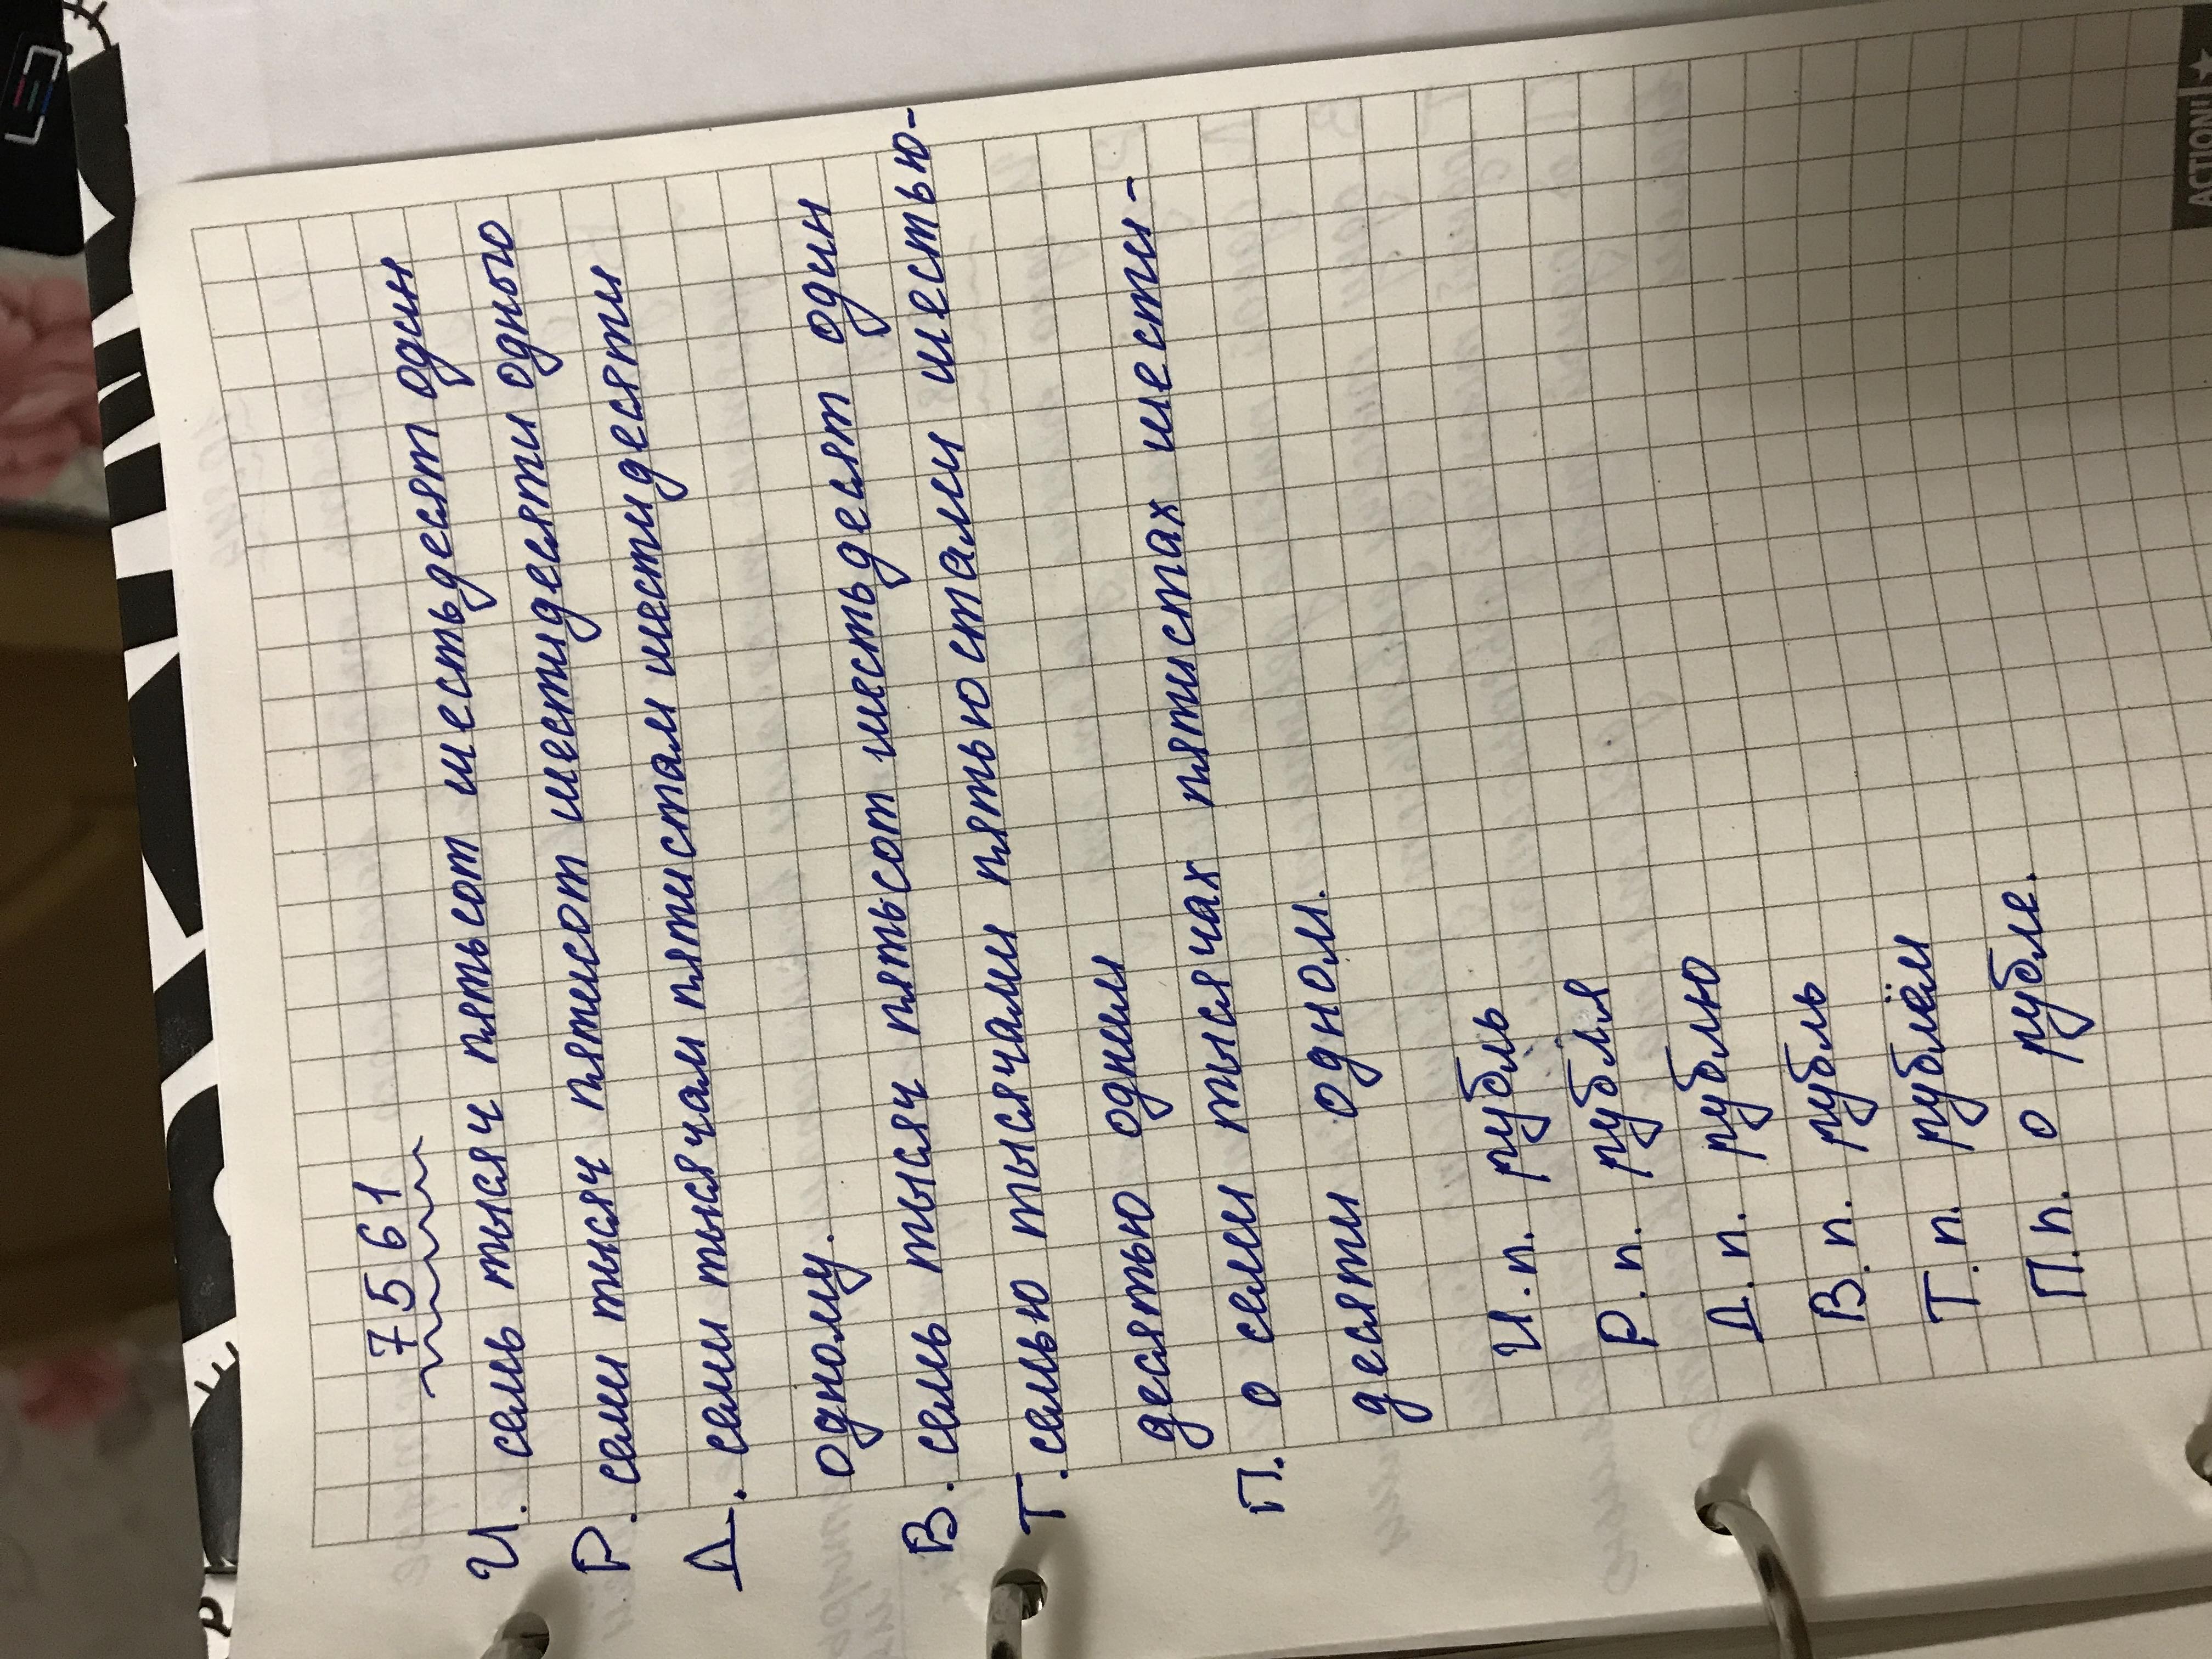 7561
И. семь тысяч пятьсот шестьдесят один
Р. семи тысяч пятисот шестидесяти одного
Д. семи тысячам пятистам шестидесяти
одному.
В. семь тысяч пятьсот шестьдесят один
Т. семью тысячами пятьюстами шестью-
десятью одним
П. о семи тысячах пятистах шести-
десяти одном.
И. п. рубль
Р. п. рубля
Д. п. рублю
В. п. рубль
Т. п. рублём
П. п. о рубле.
ACTION!